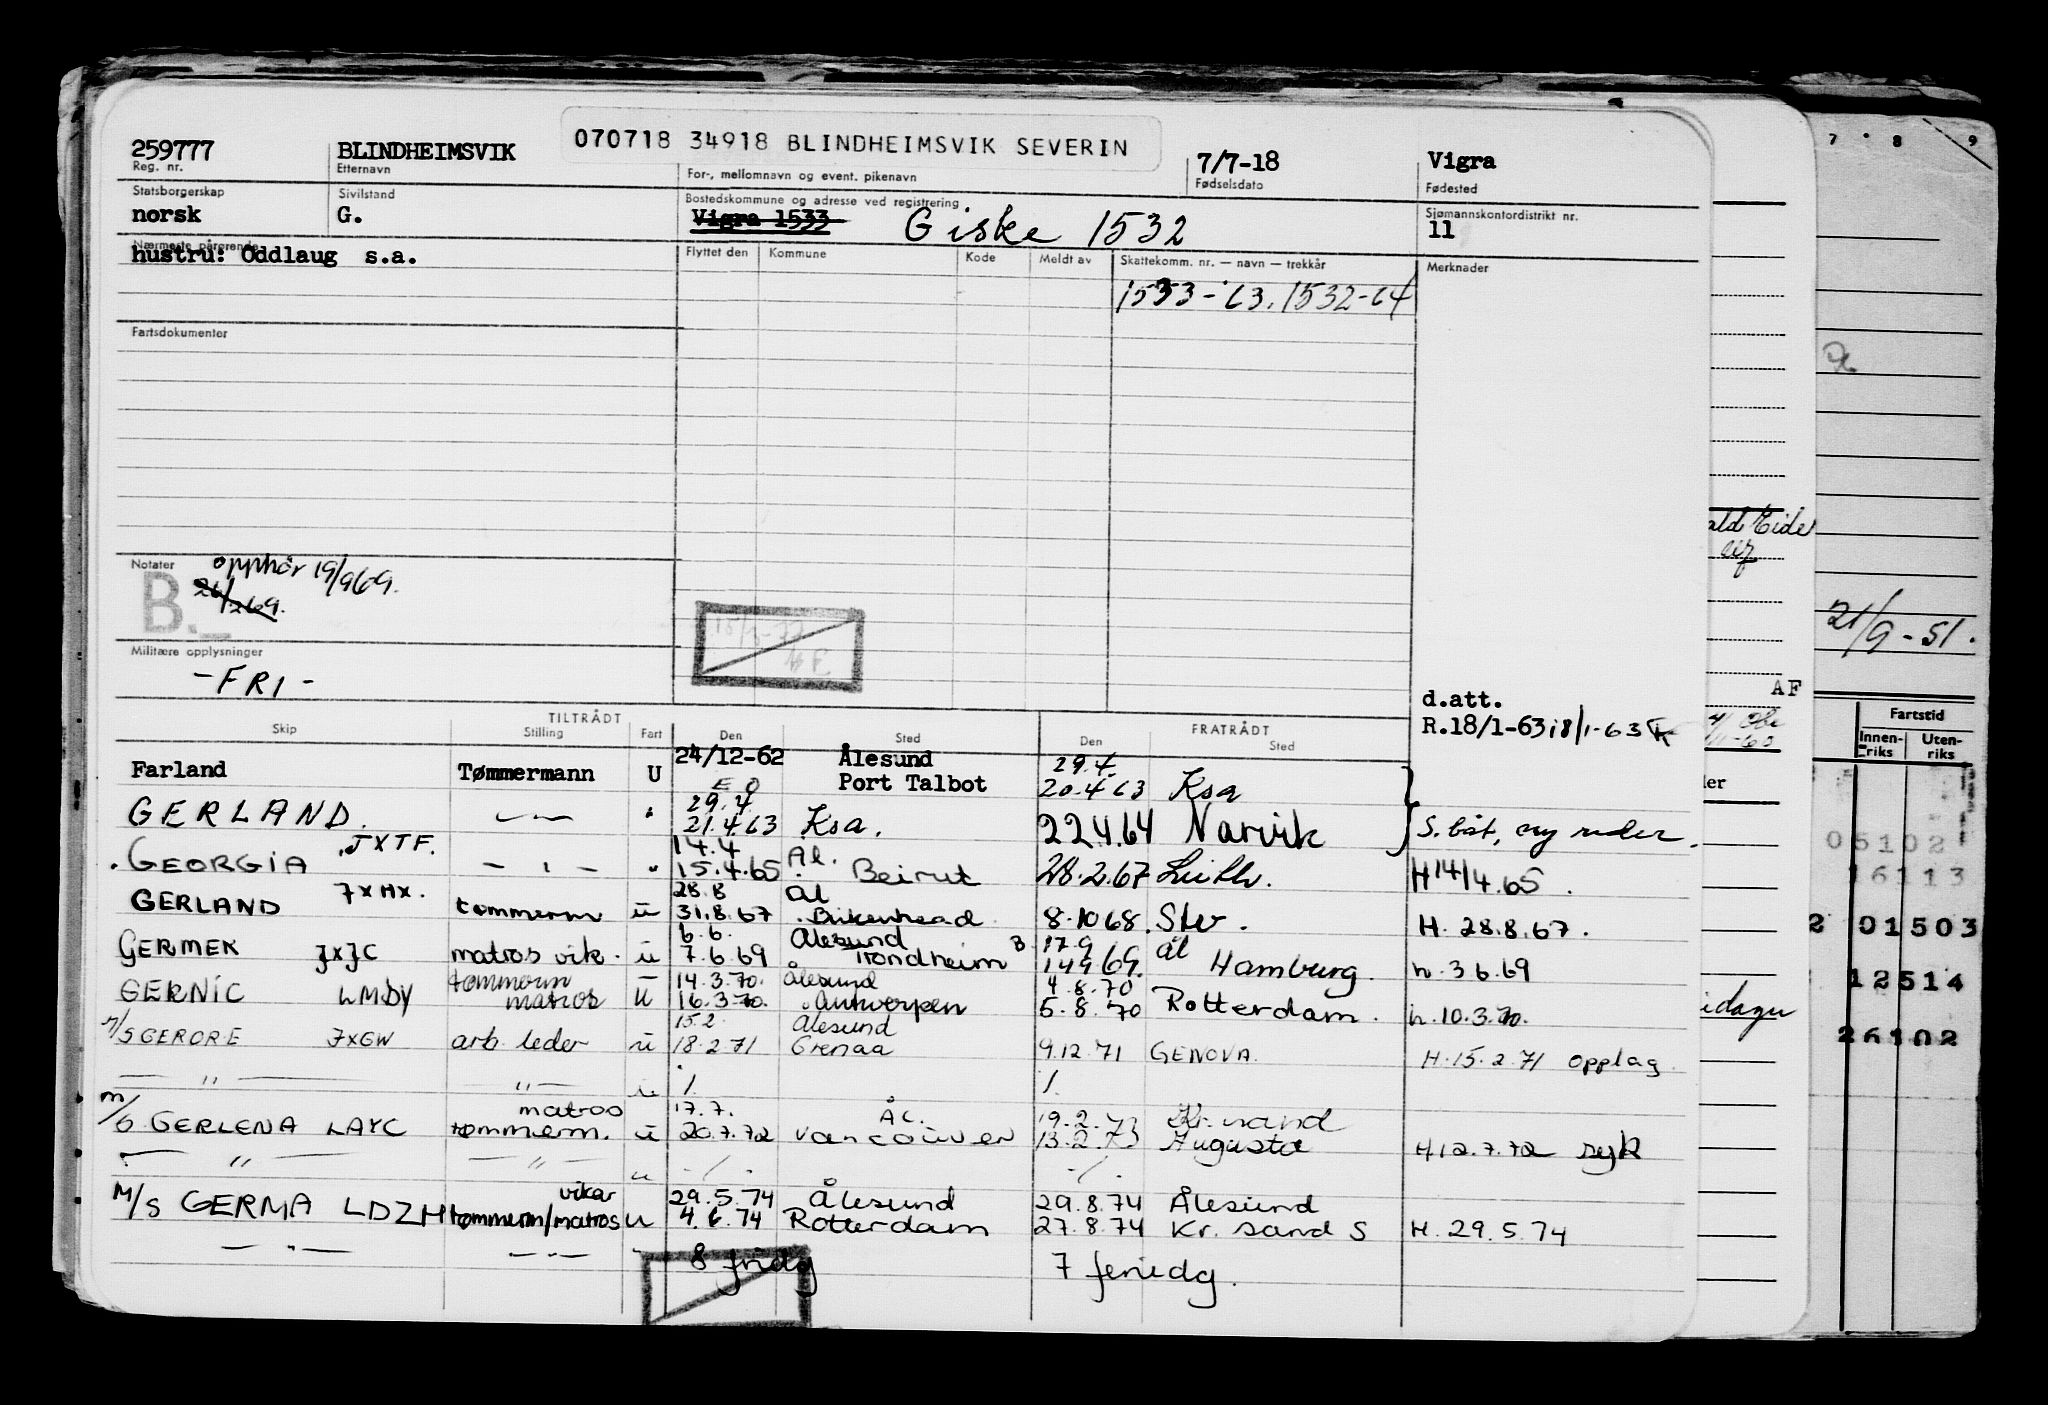 070718 34918 BLINDHEIMSVIK SEVERIN
259777 BLINDHEIMSVIK 7/7-18 Vigra
Reg. nr. Etternavn For-, mellomnavn og event. pikenavn Fødselsdato Fødested
Statsborgerskap Sivilstand Bostedskommune og adresse ved registrering Sjømannskontordistrikt nr.
norsk G. Vigra 1533 Giske 1532 11
Nærmeste pårørende Flyttet den Kommune Kode Meldt av Skattekomm. nr. — navn — trekkår Merknader
hustru: Oddlaug s.a.
1533-63. 1532-64
Fartsdokumenter
Notater opphør 19/9 69.
26/2 69.
B.
Militære opplysninger
- FRI -
d.att.
R.18/1-63 18/1-63
TILTRÅDT FRATRÅDT
Skip Stilling Fart Den Sted Den Sted
24/12-62 Ålesund 29.4.
Farland Tømmermann U Port Talbot 20.4 63 Ksa
29.4.
GERLAND. 21.4.63 Ksa. 22.4.64 Narvik S. båt, ny ruller.
14.4 Ål.
GEORGIA JXTF. 15.4.65 Beirut 28.2.67 H 14/4.65.
28.8 Ål
GERLAND JXHX. tømmerm u 31.8.67 Birkenhead 8.10 68. Stv. H. 28.8.67.
6.6. Ålesund 17.9 Ål
GERMEK JXJC matros vik. u 7.6.69 Trondheim 14.9 69. Hamburg. h. 3 6.69
tømmerm 14.3.70. Ålesund 4.8.70
GERNIC LMDY matros u 16.3.70. Antwerpen 5.8.70 Rotterdam. h. 10.3.70.
15.2. Ålesund
M/S GERORE JXGW arb. leder u 18.2.71 Grenaa 9.12.71 GENOVA. H. 15.2.71 opplag
— " — — " — u /. /.
matros 17.7. ÅL. 19.2.73 Kr. sand
M/S GERLENA LAYC tømmerm. u 20.7.72 Vancouver 13.2.73 Augusta H 12.7.72 syk
— " — — " — u -/- -/-
vikar 29.5.74 Ålesund 29.8.74 Ålesund
M/S GERMA LDZH tømmerm/matros u 4.6.74 Rotterdam 27.8.74 Kr. sand S H. 29.5.74
— " — — " — 8 fridg 7 feriedg.
7 8 9
ald Eide
21/9-51.
AF
Fartstid
Innen-riks Uten-riks
05102
16113
2 01503
12514
26102